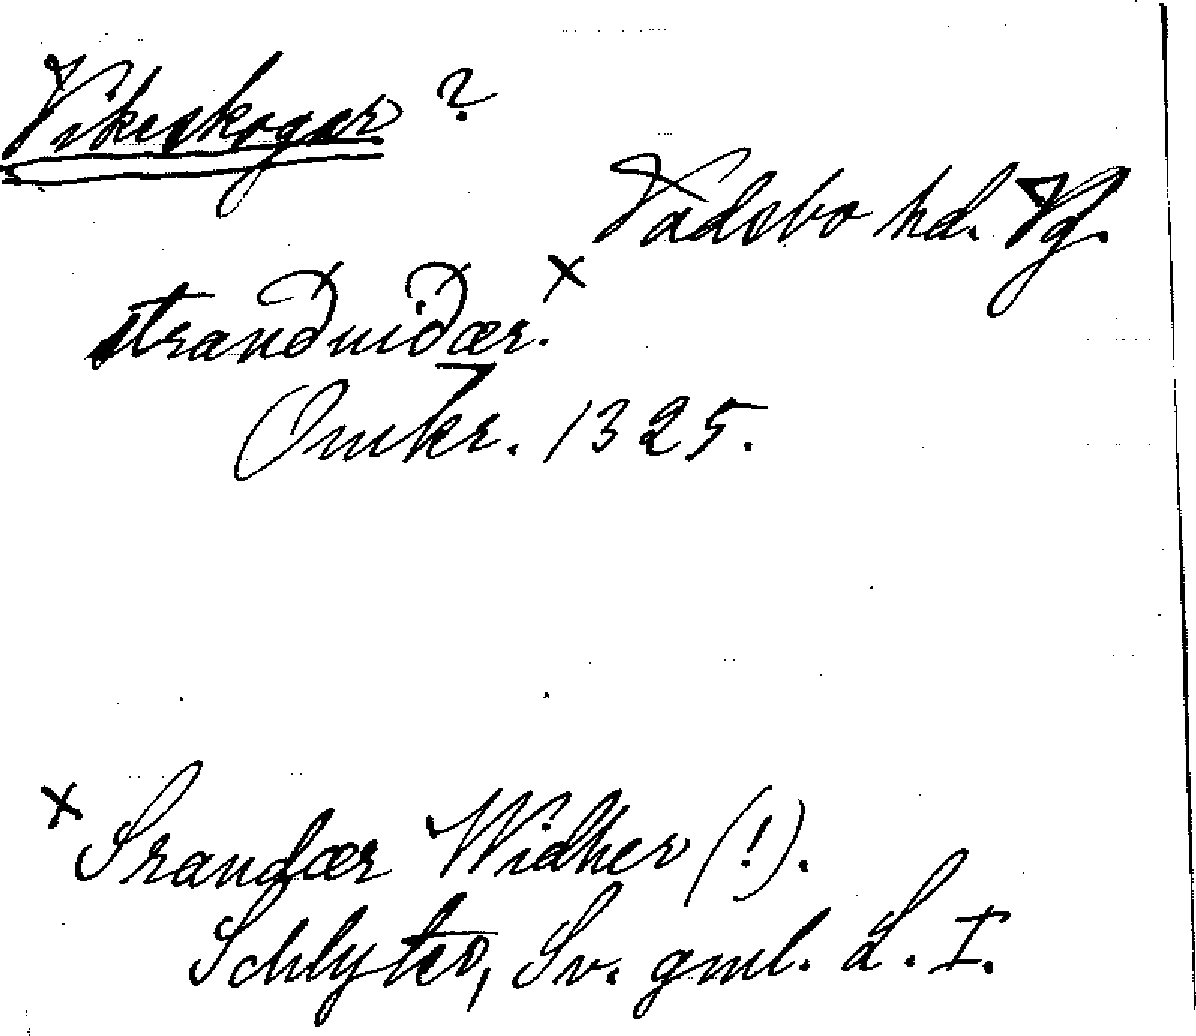 Vikeskogar ?
Vadsbo hd. Vg.
stranduidær. x
Omkr. 1325.
x Srandær Widher (!).
Schlyter, Sv. gml. L. I.